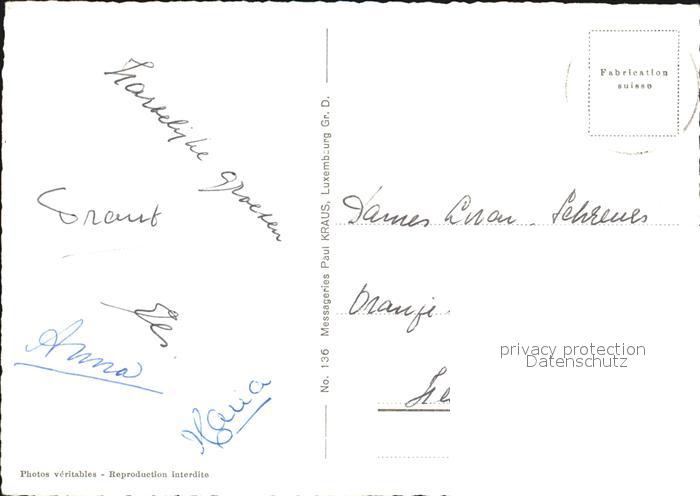 Hartelijke groeten
Frans
Anna
Maria
Photos véritables - Reproduction interdite
No. 136 Messageries Paul KRAUS, Luxembourg Gr. D.
Fabrication
suisse
Dames
Oranje
privacy protection
Datenschutz